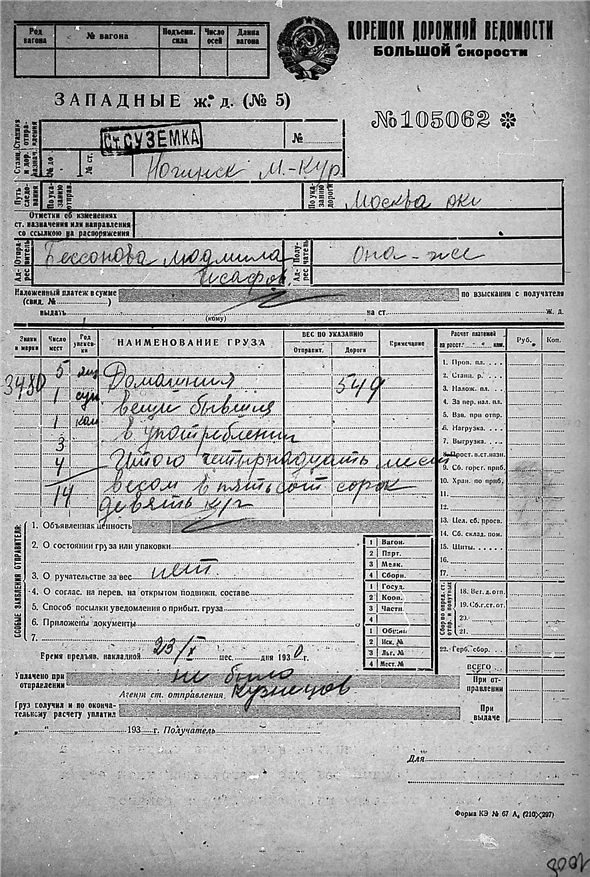 КОРЕШОК ДОРОЖНОЙ ВЕДОМОСТИ
БОЛЬШОЙ скорости
Род вагона
№ вагона
Подъемн. сила
Число осей
Длина вагона
ЗАПАДНЫЕ ж. д. (№ 5)
№105062
Станция и дор. отправления
Ст. СУЗЕМКА
№
Станц. назнач.
№ до
№ ст.
Ногинск М.-Кур.
Путь следования
По указанию отправ.
По указанию дороги
Москва
Отметки об изменениях
ст. назначения или направления
со ссылкою на распоряжения
Адрес
Отправитель
Бессонова Людмила
Адрес
Получатель
она-же
Наложенный платеж в сумме
по взыскании с получателя
(свид. №
выдать
(кому)
на ст.
ж. д.
Знаки и марки
Число мест
Род упаковки
НАИМЕНОВАНИЕ ГРУЗА
ВЕС ПО УКАЗАНИЮ
Отправит.
Дороги
Примечание
Расчет платежей
Руб.
Коп.
3480
5 ящ Домашния 549
1 сун вещи бывшия
1 в употреблении
3
4 Итого четырнадцать мест
14 весом в пятьсот сорок
девять к/г
1. Пров. пл.
2. Станц. р.
3. Налож. пл.
4. За пер. нал. пл.
5. Взв. при отпр.
6. Нагрузка.
7. Выгрузка.
8. Прост. в ст. назн.
9. Сб. горст. приб.
10. Хран. по приб.
11.
12.
13. Цел. сб. просв.
14. Сб. склад. пом.
15. Щиты.
16.
17.
18. Вес. д. отп.
19. Сб. г. ст. от.
20.
21.
22. Герб. сбор.
ВСЕГО
При отправлении
При выдаче
ОСОБЫЕ ЗАЯВЛЕНИЯ ОТПРАВИТЕЛЯ:
1. Объявленная ценность
2. О состоянии груза или упаковки
3. О ручательстве за вес нет
4. О соглас. на перев. на открытом подвижн. составе
5. Способ посылки уведомления о прибыт. груза
6. Приложены документы
7.
1 Вагон.
2 Парт.
3 Мелк.
4 Сборн.
1 Госуд.
2 Кооп.
3 Частн.
4
1 Общин.
2 Иск. №
3 Льг. №
4 Мест. №
Время предъяв. накладной 23/X мес. дня 1930г.
Уплачено при отправлении
не было
Агент ст. отправления Кузнецов
Груз получил и по окончательному расчету уплатил
193 г. Получатель
Для
Форма КЭ № 67 А, (210×297)